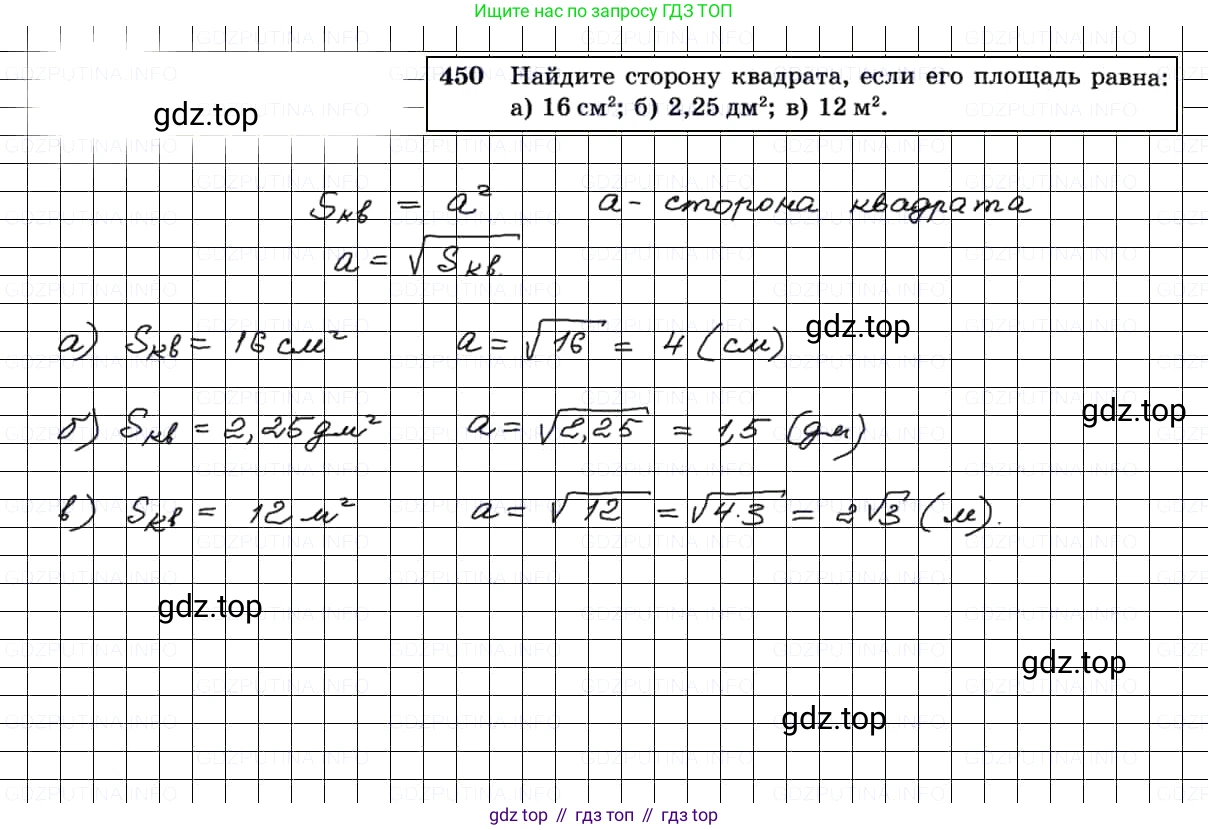 Ищите нас по запросу ГДЗ ТОП
450 Найдите сторону квадрата, если его площадь равна:
а) 16 см²; б) 2,25 дм²; в) 12 м².
gdz.top
Sкв = a² a - сторона квадрата
a = √Sкв.
gdz.top
а) Sкв = 16 см² a = √16 = 4 (см)
gdz.top
б) Sкв = 2,25 дм² a = √2,25 = 1,5 (дм)
в) Sкв = 12 м² a = √12 = √4·3 = 2√3 (м).
gdz.top
gdz.top
gdz.top
gdz top // гдз топ // гдз top
GDZPUTINA.INFO